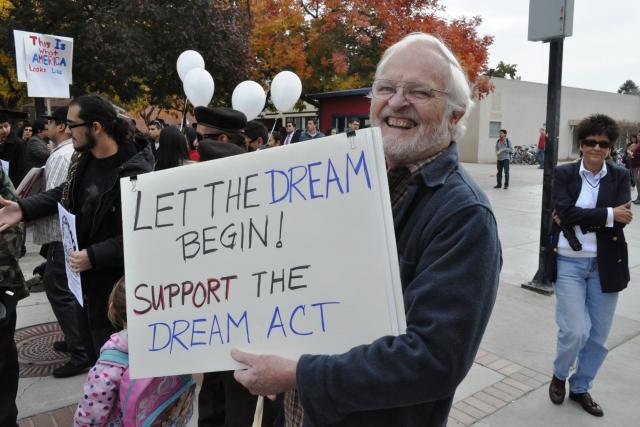 This Is
What
AMERICA
Looks Like
LET THE DREAM
BEGIN!
SUPPORT THE
DREAM ACT